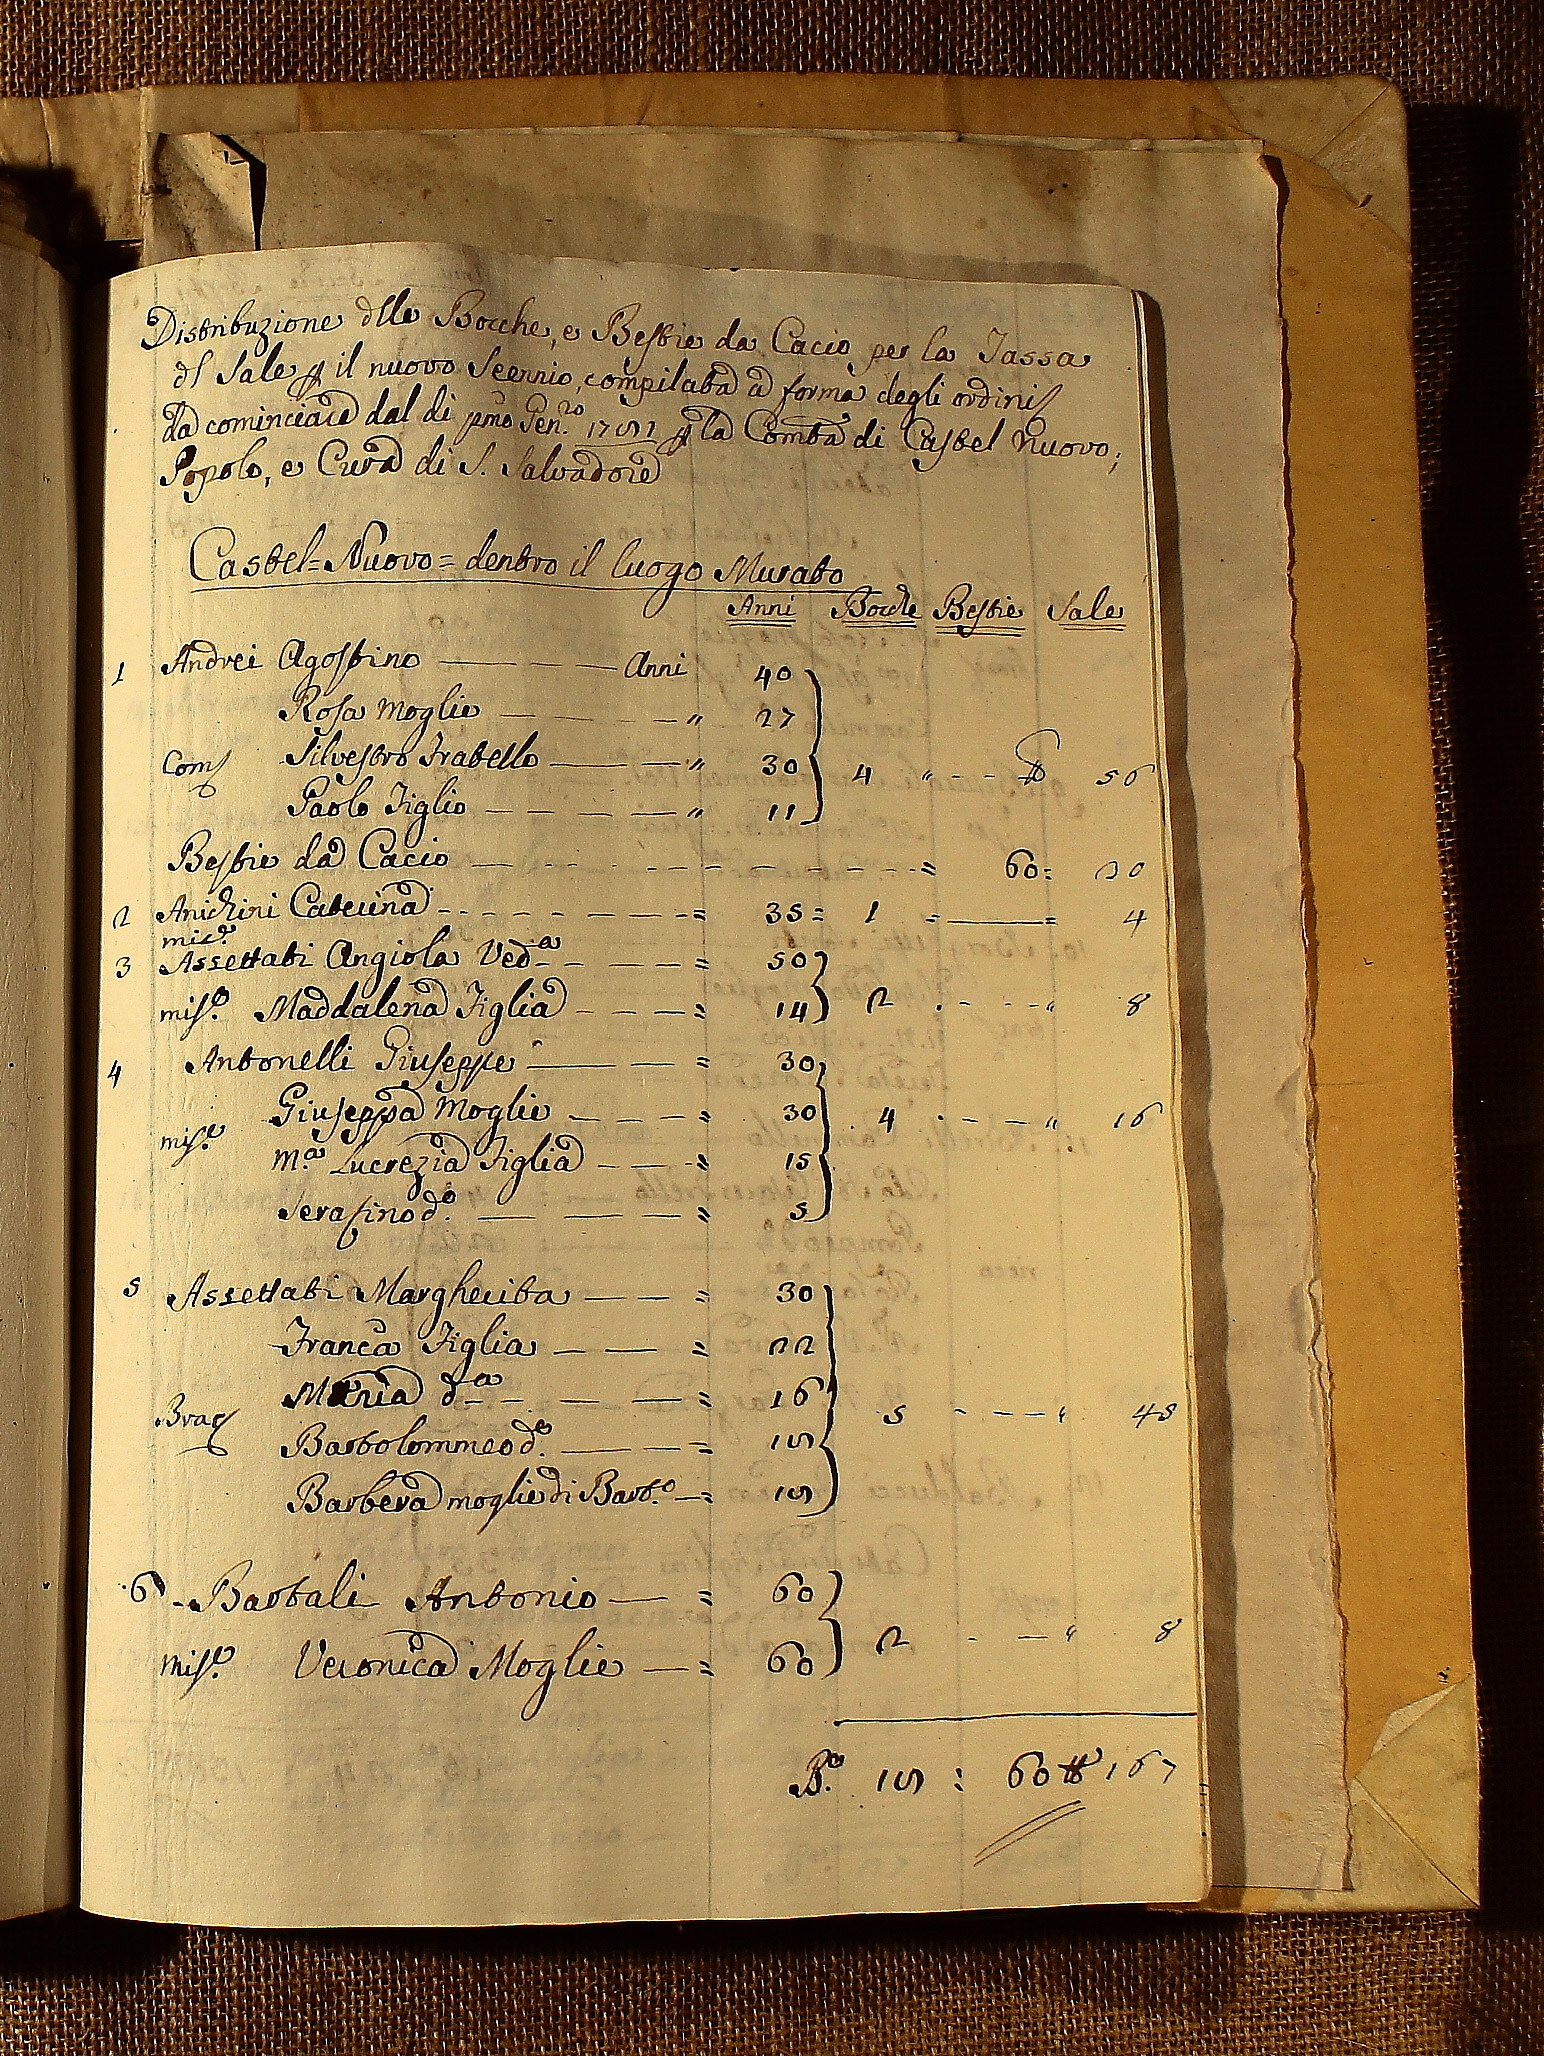 Distribuzione dlle Bocche, e Bestie da Cacio per la Tassa
dl Sale p il nuovo Seennio, compilata a forma degli ordini
da cominciare dal di pmo Gen.ro 1781 p la Comta di Castel Nuovo;
Popolo, e Cura di S. Salvadore
Castel=Nuovo= dentro il luogo Murato
Anni Bocche Bestie Sale
1 Andrei Agostino — — — — Anni 40
Rosa Moglie — — — — " 27
Com Silvestro Fratello — — — " 30 4 " - - - lb 56
Paolo Figlio — — — — " 11
Bestie da Cacio — - - - - - - - = 60 = 30
2 Anichini Caterina - - - - — — = 35 = 1 = ——— = 4
mis.e
3 Assettati Angiola Ved.a - - — — = 50
mis.e Maddalena Figlia - — — = 14 2 . - - - " 8
4 Antonelli Giuseppe — — — = 30
Giuseppa Moglie — — — = 30 4 . - - — " 16
mis.e
M.a Lucrezia Figlia - — — = 15
Serafino d.o — — — = 5
5 Assettati Margherita — — = 30
Franca Figlia — — — = 22
Maria d.a - - — — = 16
Brac 5 - - — — " 45
Bartolommeo d.o — — — = 18
Barbera moglie di Bart.o — = 18
6 - Bartali Antonio — = 60
2 - — " 8
mis.e Veronica Moglie — = 60
B.e 18 : 60 lb 167